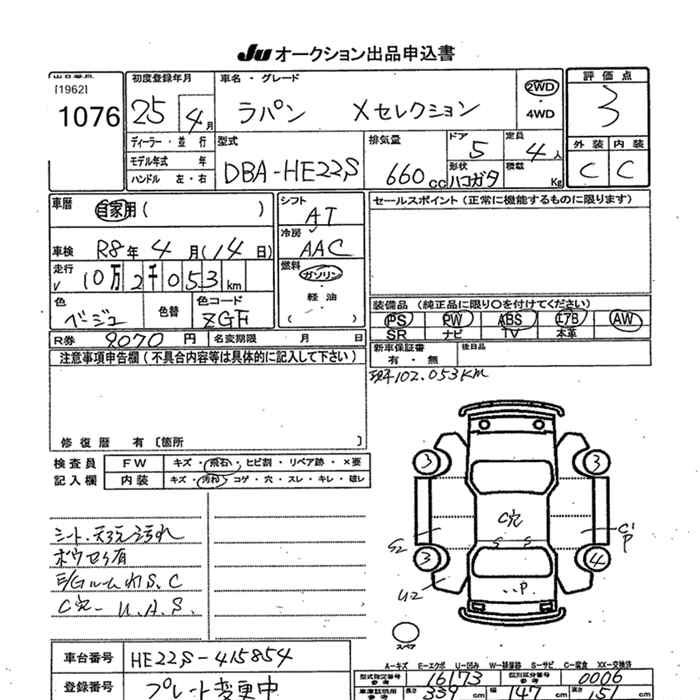 JU オークション出品申込書
[1962]
1076
初度登録年月
25 4月
車名・グレード
ラパン Xセレクション
2WD
・
4WD
評価点
3
外装 内装
C C
ディーラー・並行
モデル年式 年
ハンドル 左・右
型式
DBA-HE22S
排気量
660cc
ドア
5
定員
4人
形状
ハコガタ
積載
Kg
車歴
自家用( )
シフト
AT
冷房
AAC
セールスポイント(正常に機能するものに限ります)
車検 R8年4月(14日)
走行
10万2千053km
燃料
ガソリン
・
軽油
( )
色
ベージュ
色替
色コード
ZGF
装備品(純正品に限り○を付けてください)
PS PW ABS エアB AW
SR ナビ TV 本革
R券 9070円 名変期限 月 日
新車保証書
有・無
後日品
現4102.053Km
注意事項申告欄(不具合内容等は具体的に記入して下さい)
修復歴 有〔箇所 〕
検査員
記入欄
FW キズ・飛石・ヒビ割・リペア跡・×要
内装 キズ・汚れ・コゲ・穴・スレ・キレ・破レ
シート・天張汚れ
ボウセイ有
E/Gルーム内S.C
C穴-U.A.S.
3 3
C穴
S2
C1
P
S S
3 4
U2
P
スペア
A-キズ E-エクボ U-凹み W-補修跡 S-サビ C-腐食 XX-交換済
車台番号 HE22S-415854
登録番号 プレート変更中
型式指定番号
参考
16173
類別区分番号
参考
0006
車庫証明用
参考
長さ 339cm 幅 147cm 高さ 151cm